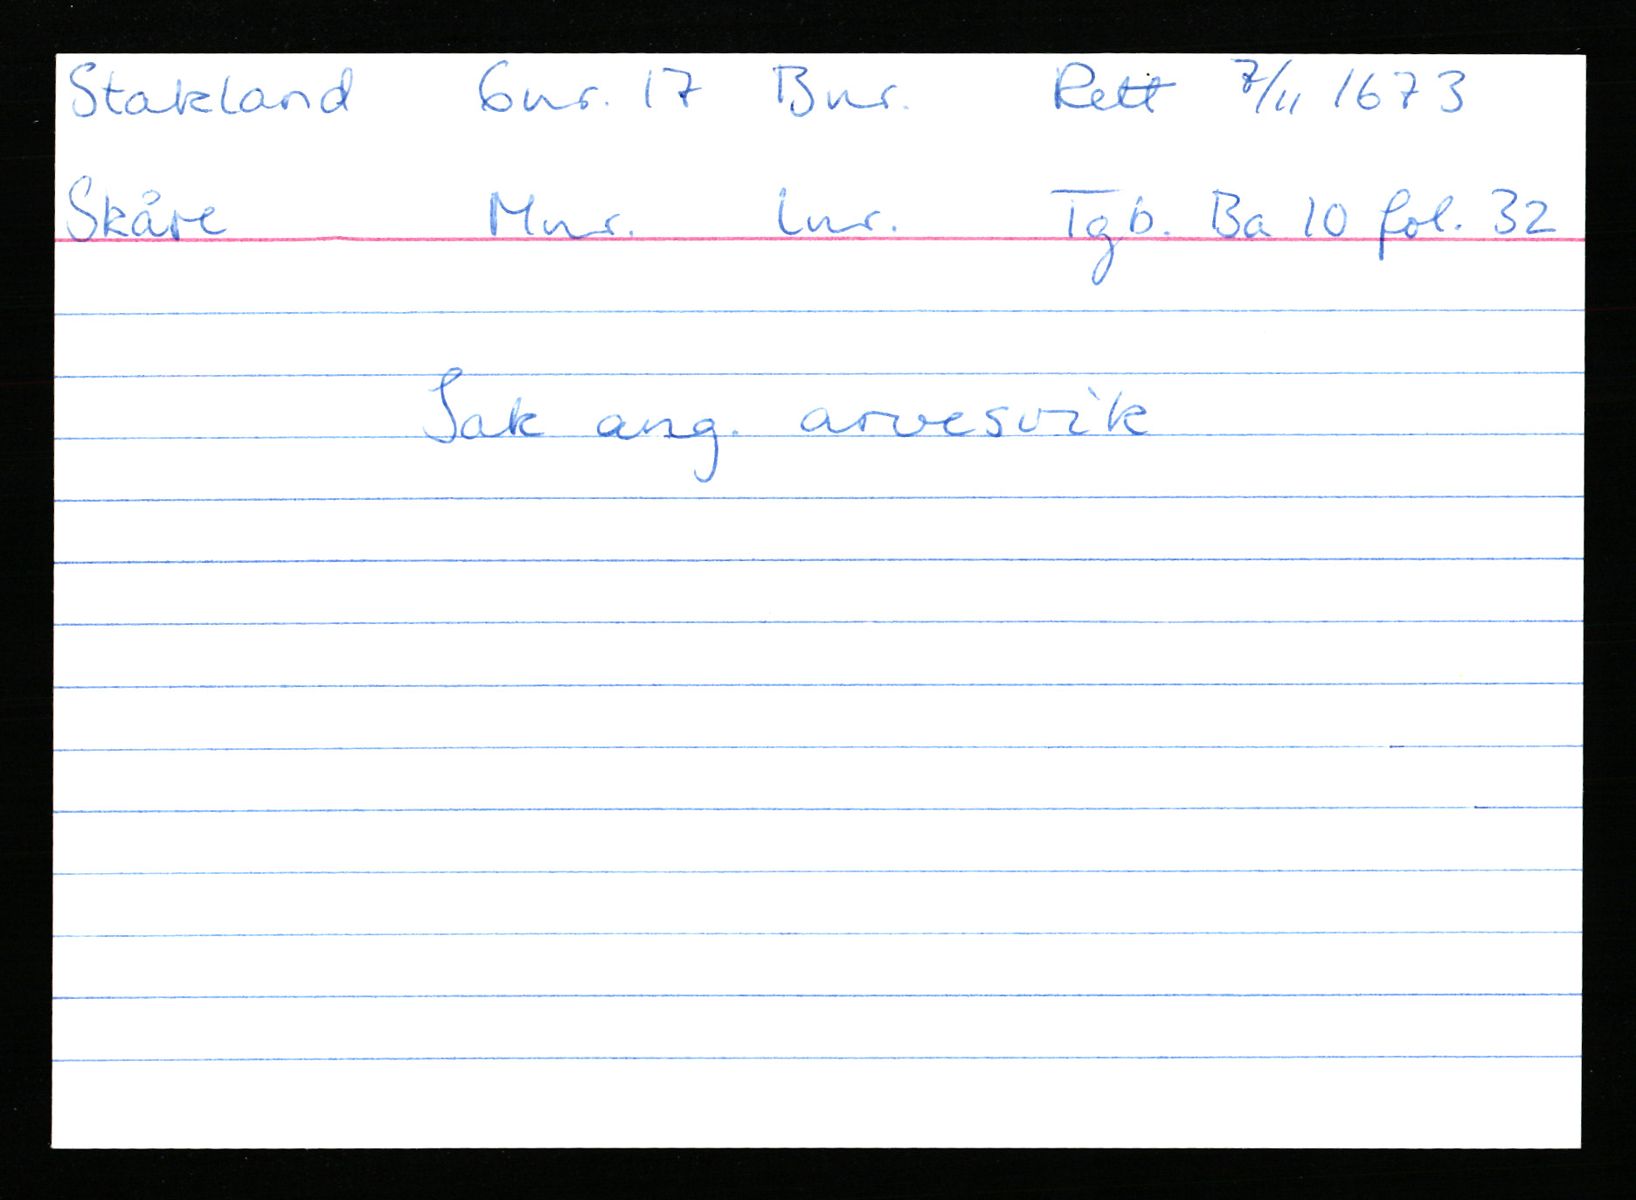 Stakland Gnr. 17 Bnr. Rett 7/11 1673
Skåre Mnr. Lnr. Tgb. Ba 10 fol. 32
Sak ang. arvesvik